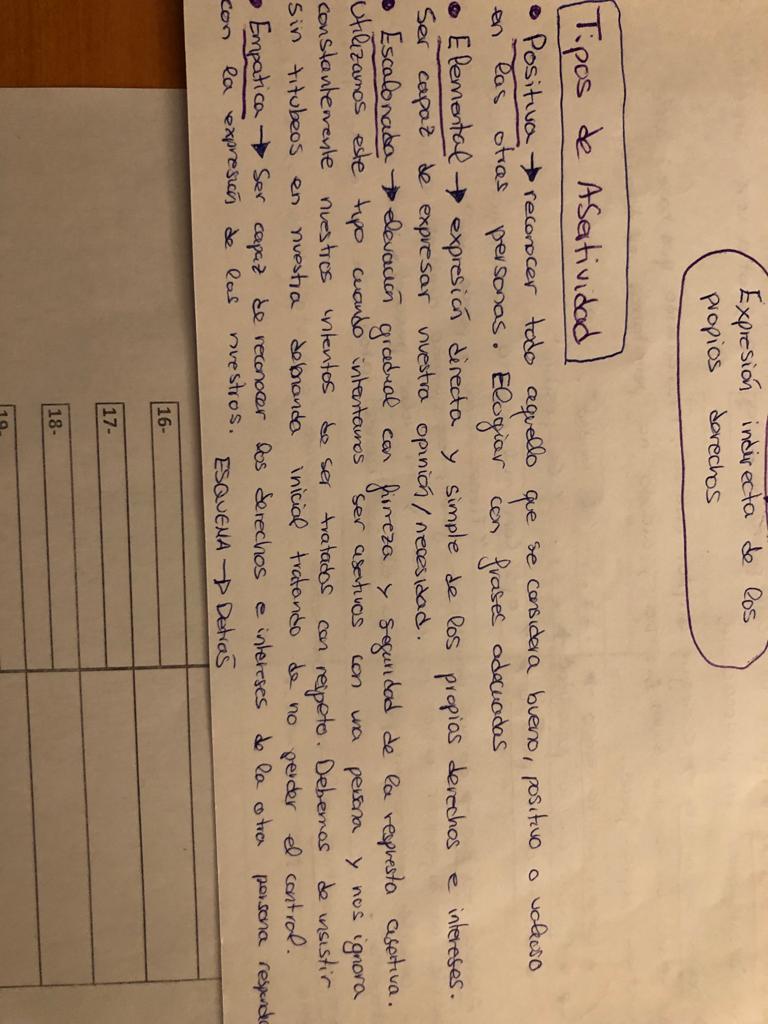 Expresión indirecta de los
propios derechos
Tipos de Asertividad
• Positiva → reconocer todo aquello que se considera bueno, positivo o valioso
en las otras personas. Elogiar con frases adecuadas
• Elemental → expresión directa y simple de los propios derechos e intereses.
Ser capaz de expresar nuestra opinión/necesidad.
• Escalonada → elevación gradual con firmeza y seguridad de la respuesta asertiva.
Utilizamos este tipo cuando intentamos ser asertivos con una persona y nos ignora
constantemente nuestros intentos de ser tratados con respeto. Debemos de insistir
sin titubeos en nuestra demanda inicial tratando de no perder el control.
• Empática → Ser capaz de reconocer los derechos e intereses de la otra persona
con la expresión de los nuestros. ESQUEMA → Detrás
16-
17-
18-
19-